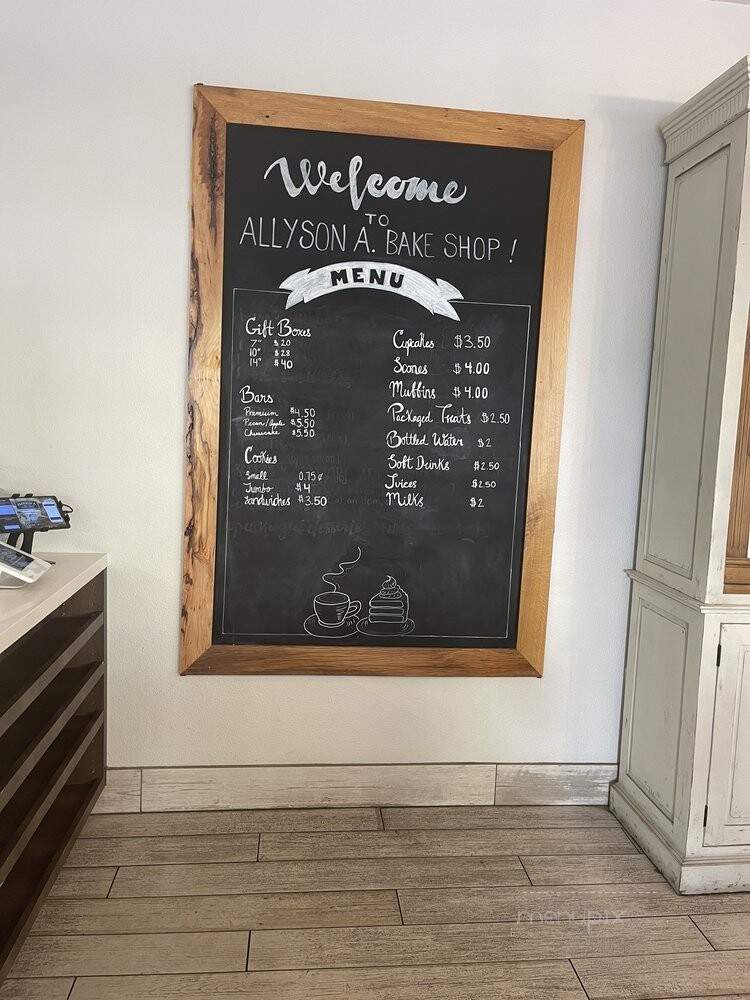 Welcome
TO
ALLYSON A. BAKE SHOP !
MENU
Gift Boxes
7" $20
10" $28
14" $40
Bars
Premium $4.50
Pecan/Apple $5.50
Cheesecake $5.50
Cookies
Small 0.75¢
Jumbo $4
Sandwiches $3.50
Cupcakes $3.50
Scones $4.00
Muffins $4.00
Packaged Treats $2.50
Bottled Water $2
Soft Drinks $2.50
Juices $2.50
Milks $2
menupix